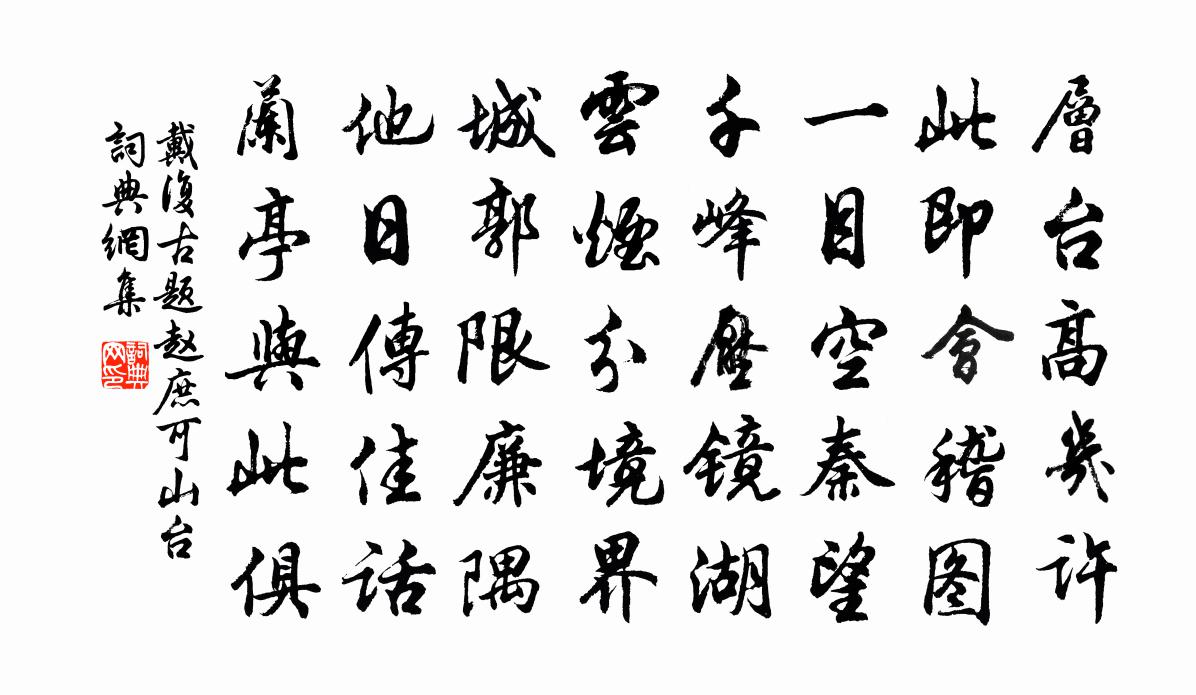 層台高幾许
此即會稽图
一目空秦望
千峰壓镜湖
雲煙分境界
城郭限廉隅
他日傳佳话
蘭亭與此俱
戴復古題赵庶可山台
詞典網集
詞典
网印